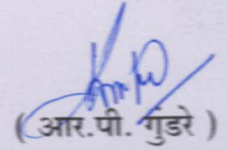 ( आर.पी. गुंडरे )